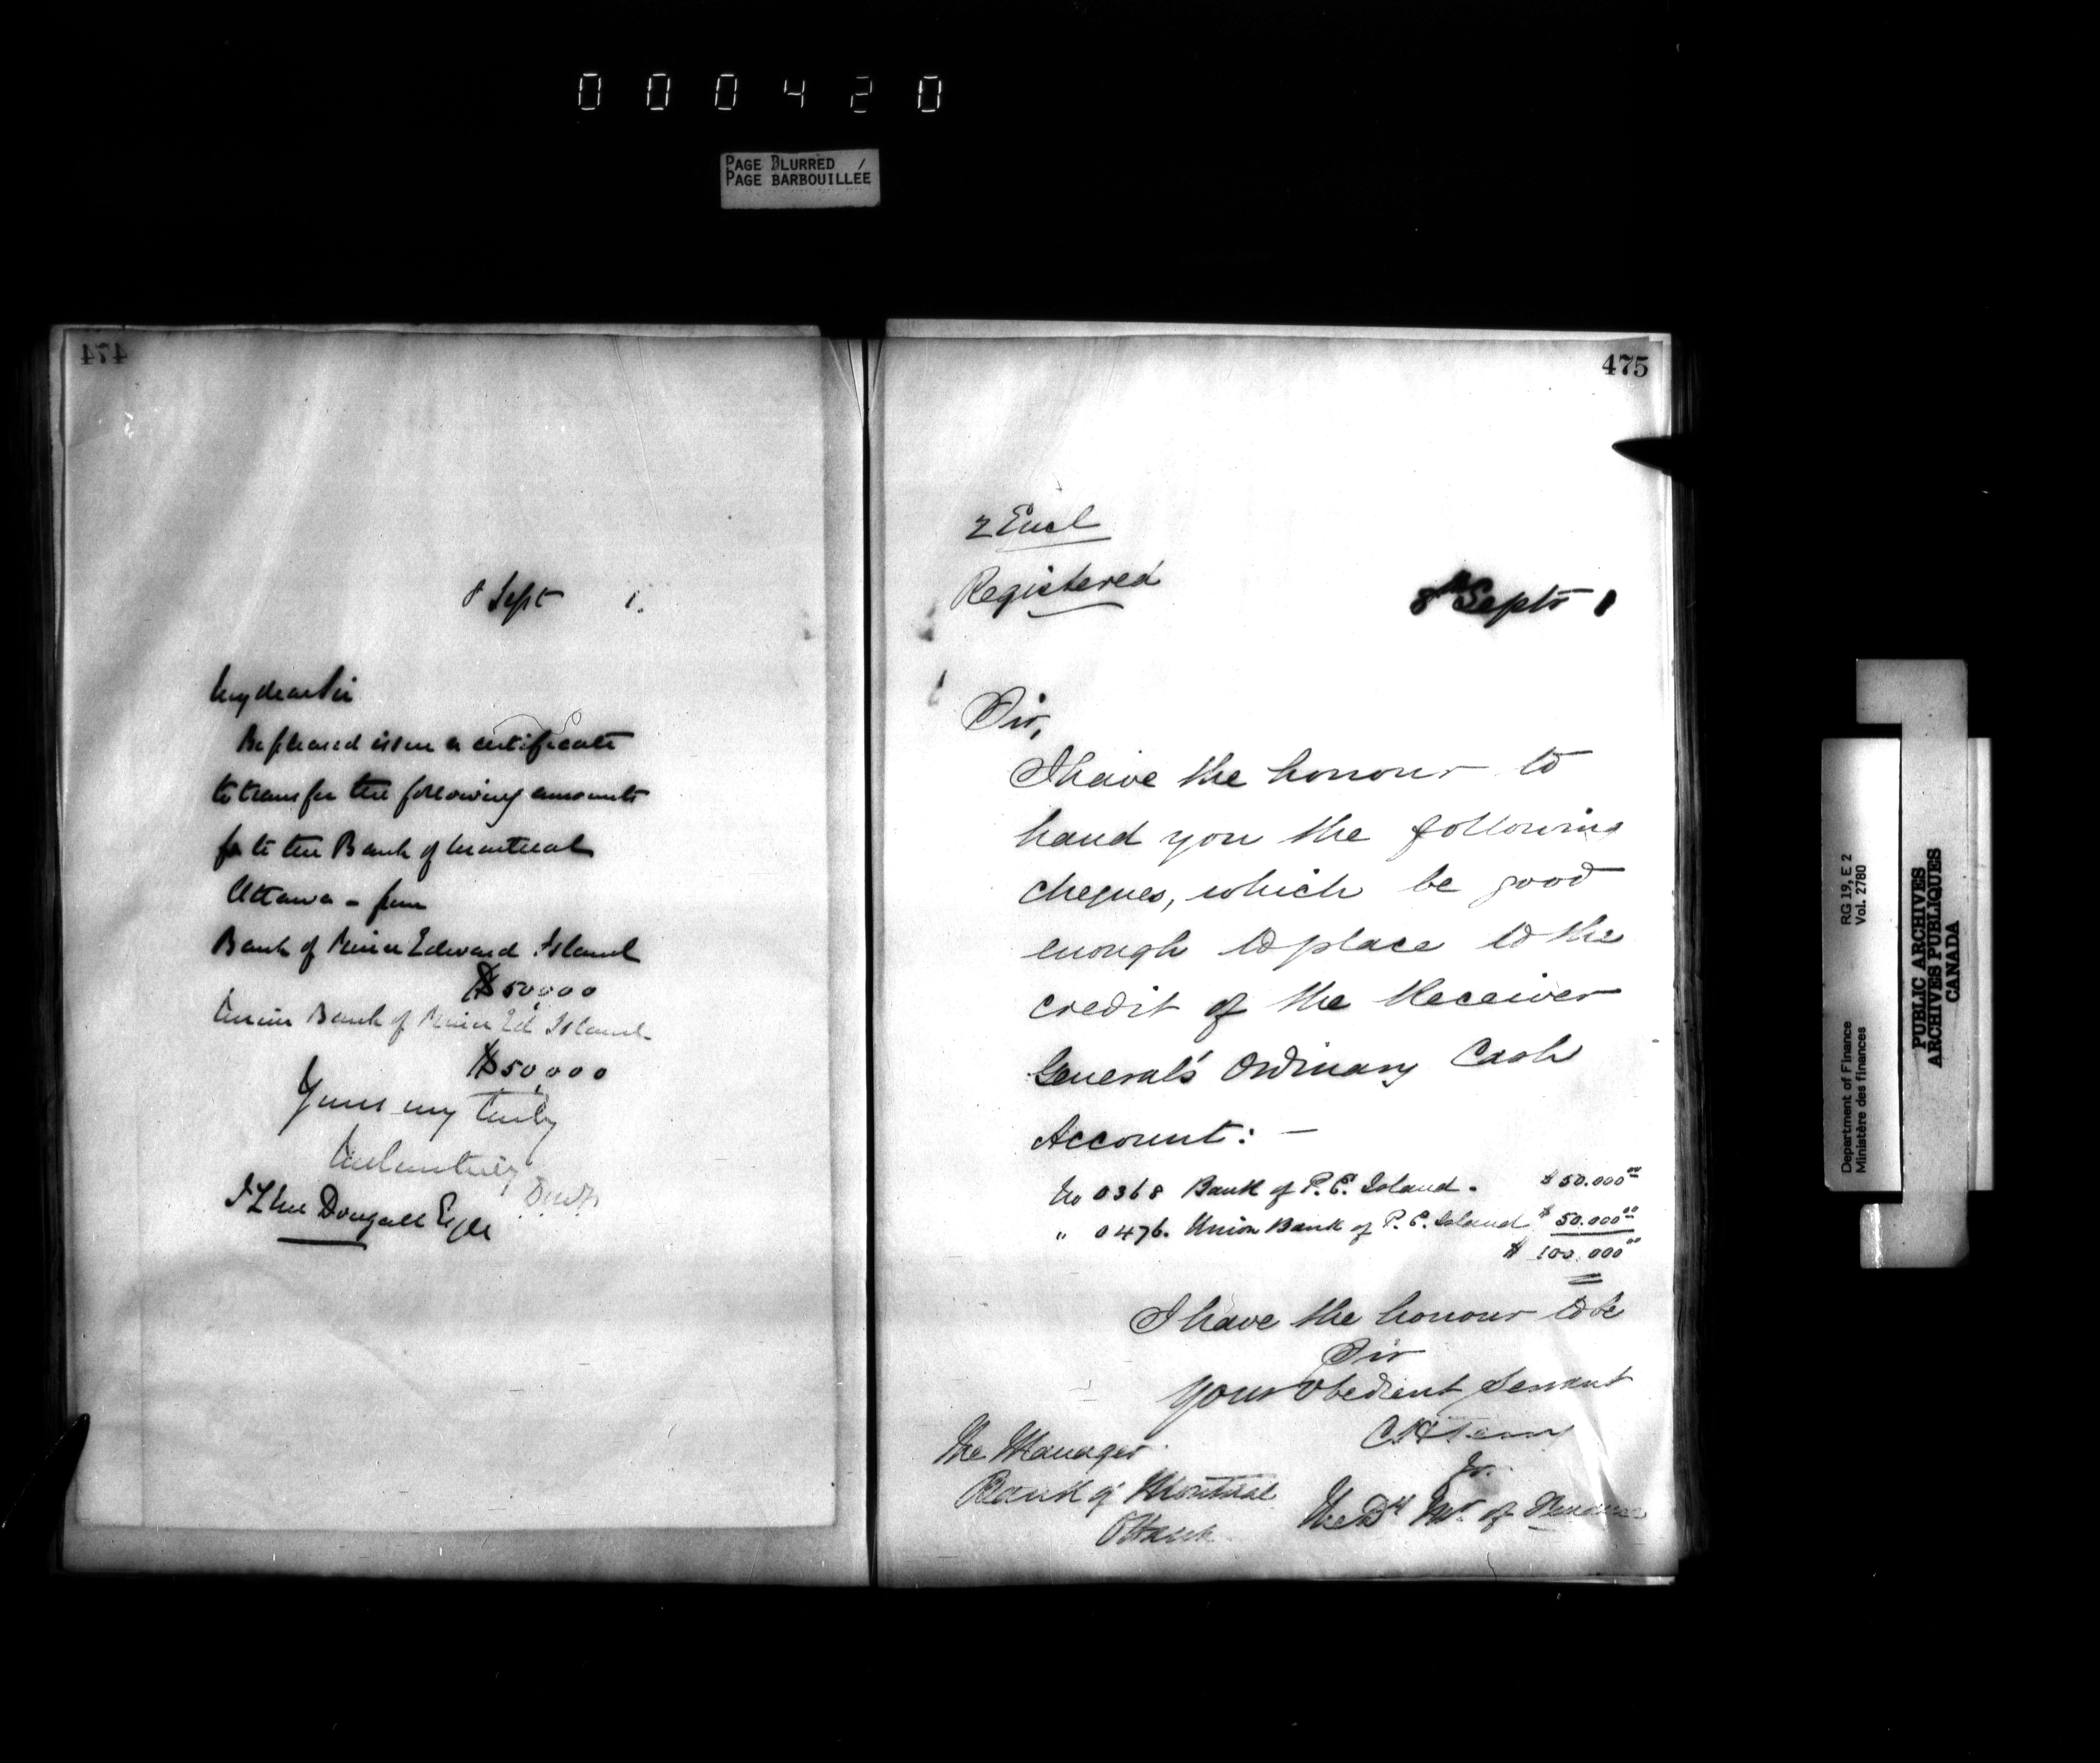 000420
PAGE BLURRED
PAGE BARBOUILLÉE
474
8 Sept 1.
My dear Sir
Be pleased issue a certificate
to transfer the following amounts
to the Bank of Montreal
Ottawa - from
Bank of Prince Edward Island
$50,000
Union Bank of Prince Ed Island
$50,000
Yours very truly
J L McDougall Esqre
475
2 Encl
Registered
8th Septr 1
Sir,
I have the honour to
hand you the following
cheques, which be good
enough to place to the
credit of the Receiver
General's Ordinary Cash
Account: —
No 0368 Bank of P. E. Island. $50.000 00
" 0476. Union Bank of P. E. Island $ 50.000 00
$ 100.000 00
I have the honour to be
Sir
Your obedient servant
for
The Manager
Bank of Montreal
Ottawa
The Dy Mr. of Finance
Department of Finance RG 19, E 2
Ministère des finances Vol. 2780
PUBLIC ARCHIVES
ARCHIVES PUBLIQUES
CANADA